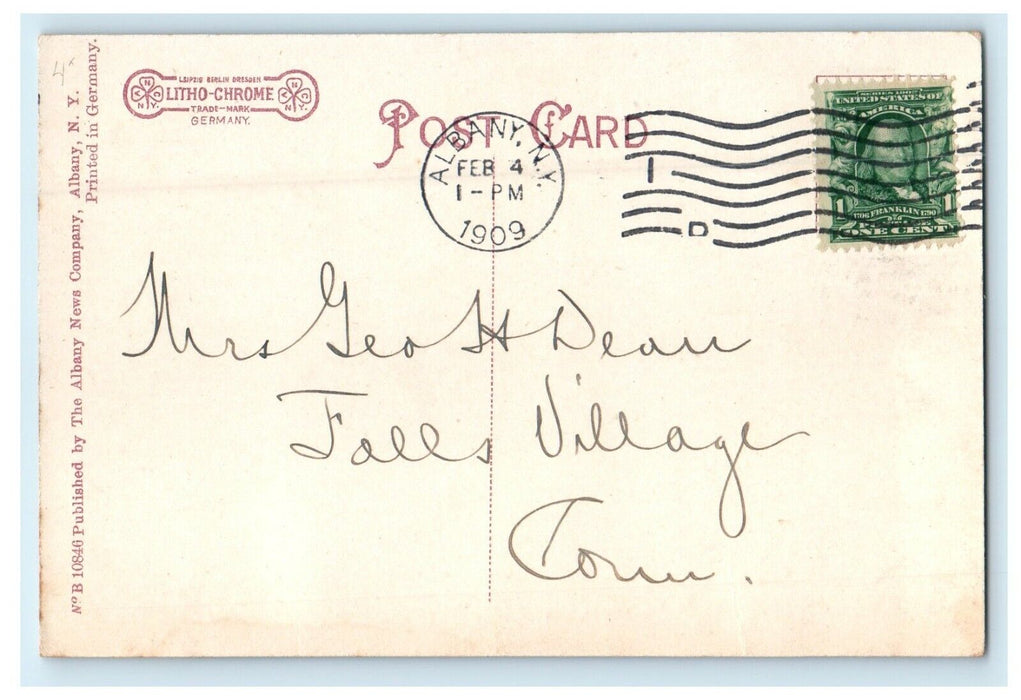 4
LEIPZIG BERLIN DRESDEN
LITHO-CHROME
TRADE-MARK
GERMANY.
POST CARD
ALBANY, N.Y.
FEB 4
1-PM
1909
1
D
SERIES 1902
UNITED STATES OF
AMERICA
1 1706 FRANKLIN 1790 1
ONE CENT
Mrs Geo H Dean
Falls Village
Conn.
Nº B 10846 Published by The Albany News Company, Albany, N. Y.
Printed in Germany.